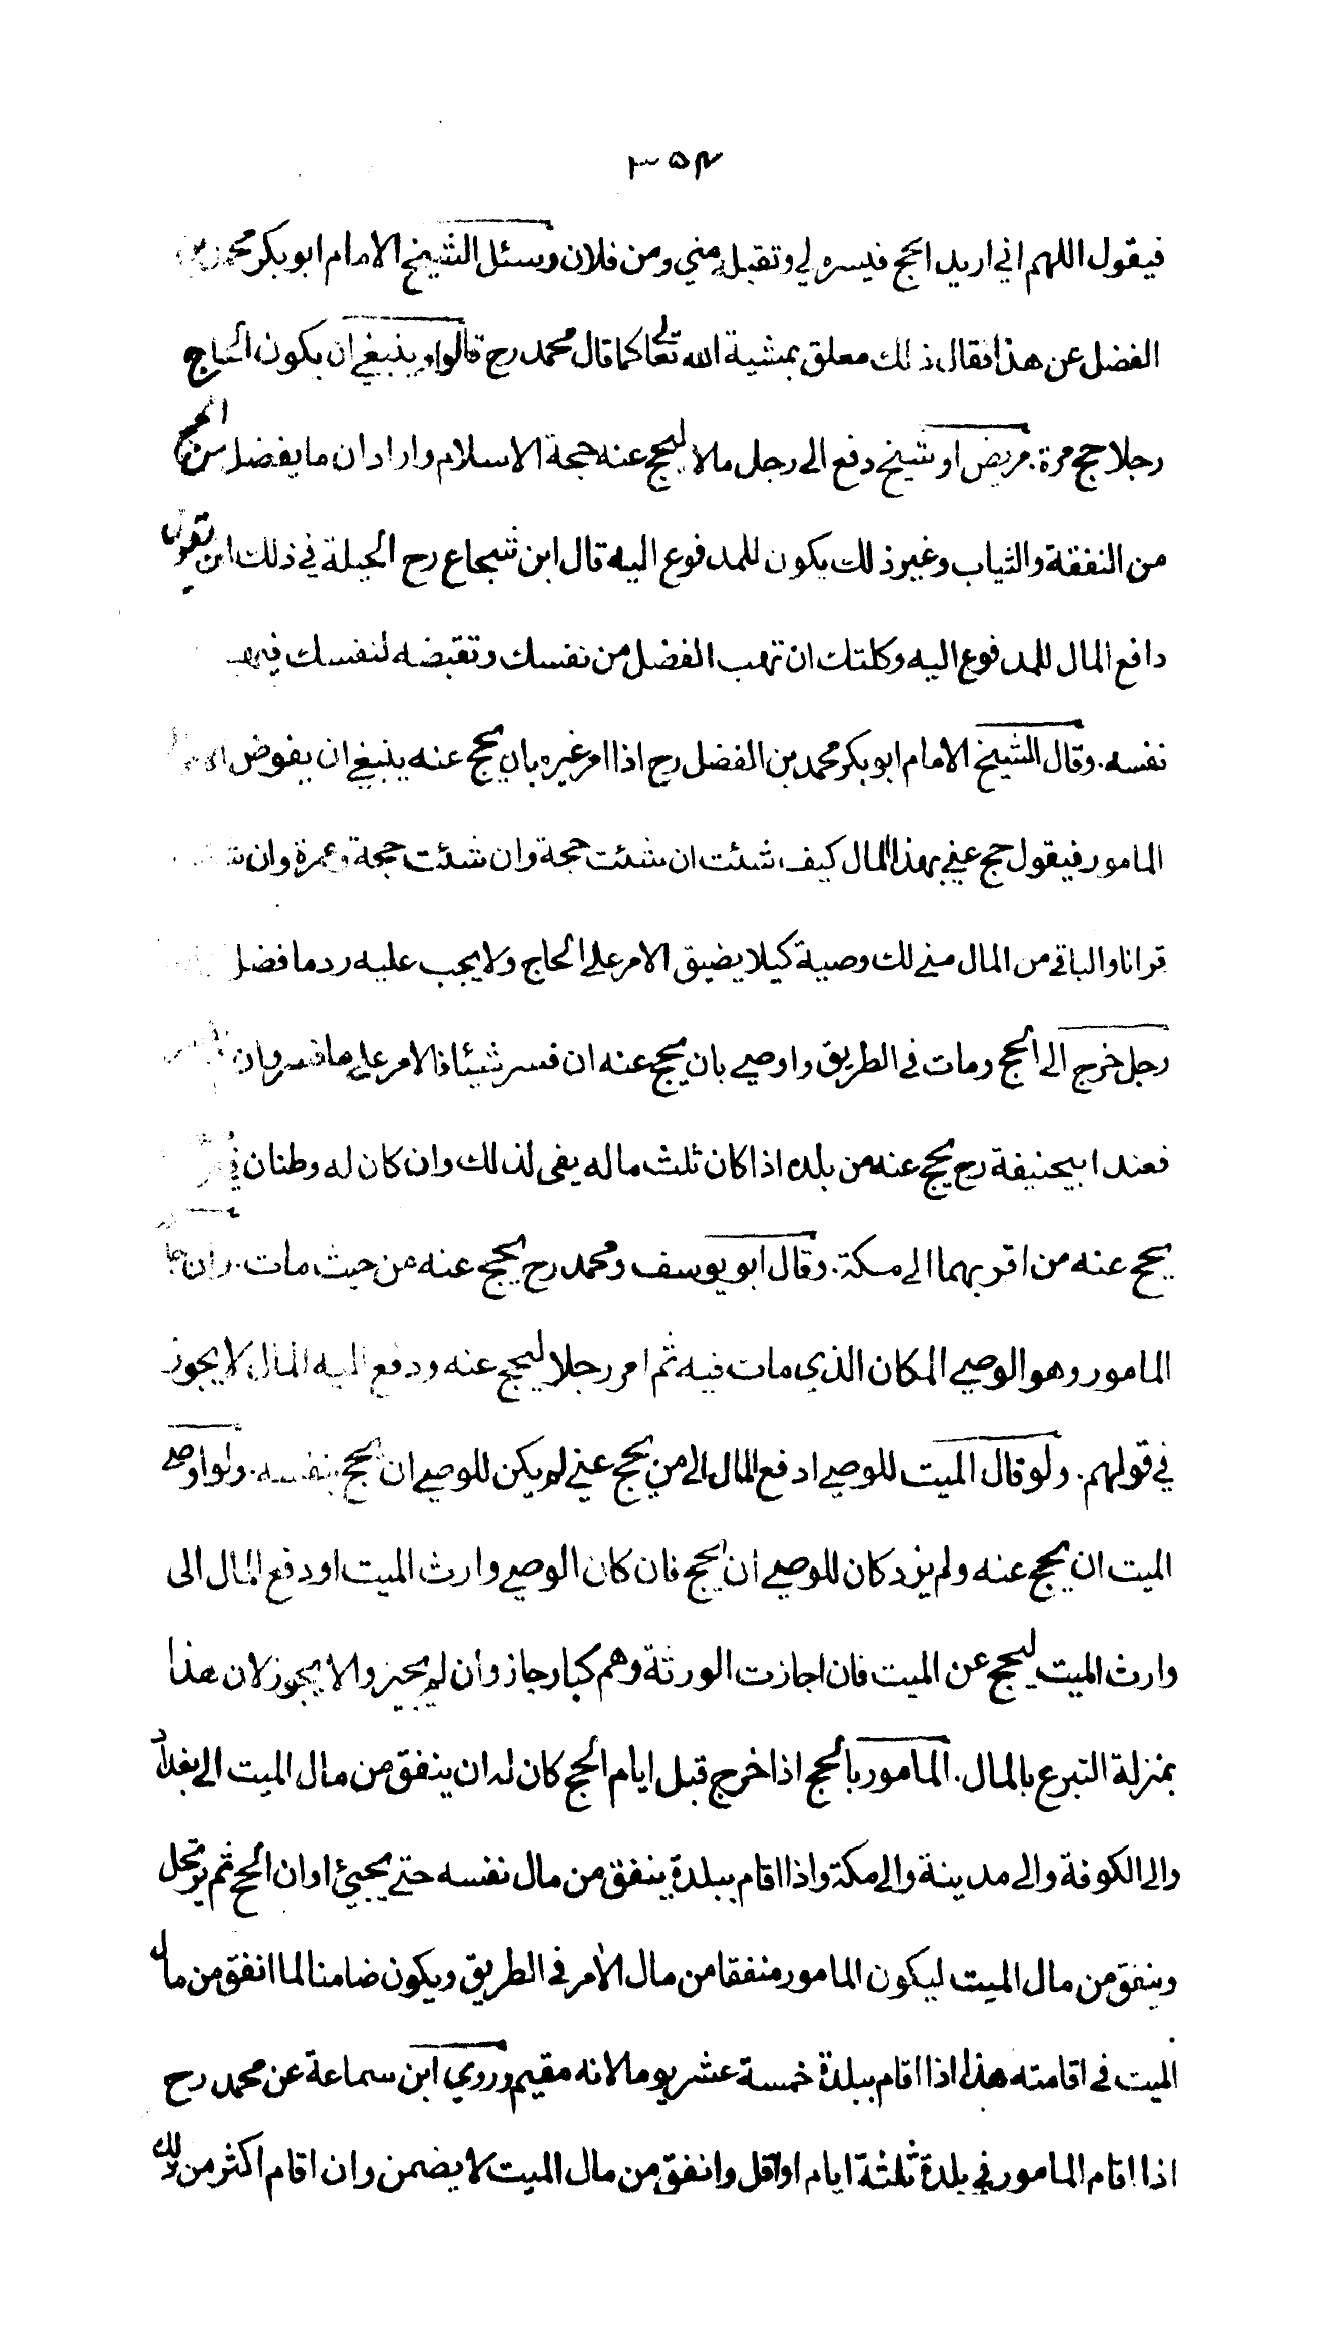 ۳۵۴
فيقول اللهم اني اريد الحج فيسره لي وتقبله مني ومن فلان وسئل الشيخ الامام ابو بكر محمد بن
الفضل عن هذا فقال ذلك معلق بمشية الله تعالى كما قال محمد رح قالوا وينبغي ان يكون الحاج
رجلا حج مرة. مريض او شيخ دفع الى رجل مالا ليحج عنه حجة الاسلام واراد ان ما يفضل من الحج
من النفقة والثياب وغير ذلك يكون للمدفوع اليه قال ابن شجاع رح الحيلة في ذلك ان يقول
دافع المال للمدفوع اليه وكلتك ان تهب الفضل من نفسك وتقبضه لنفسك فيهب
نفسه. وقال الشيخ الامام ابو بكر محمد بن الفضل رح اذا امر غيره بان يحج عنه ينبغي ان يفوض الامر
المامور فيقول حج عني بهذا المال كيف شئت ان شئت حجة وان شئت حجة وعمرة وان
قرانا والباقي من المال مني لك وصية كيلا يضيق الامر على الحاج ولا يجب عليه رد ما فضل
رجل خرج الى الحج ومات في الطريق واوصى بان يحج عنه ان فسر شيئا فالامر على ما فسر وان
فعند ابيحنيفة رح يحج عنه من بلده اذا كان ثلث ماله يفى لذلك وان كان له وطنان في
يحج عنه من اقربهما الى مكة. وقال ابو يوسف ومحمد رح يحج عنه من حيث مات. وان
المامور وهو الوصي المكان الذي مات فيه ثم امر رجلا ليحج عنه ودفع اليه المال لا يجوز
في قولهم. ولو قال الميت للوصي ادفع المال الى من يحج عني لم يكن للوصي ان يحج بنفسه. ولو اوصى
الميت ان يحج عنه ولم يزد كان للوصي ان يحج فان كان الوصي وارث الميت او دفع المال الى
وارث الميت ليحج عن الميت فان اجازت الورثة وهم كبار جاز وان لم يجيزوا لا يجوز لان هذا
بمنزلة التبرع بالمال. المامور بالحج اذا خرج قبل ايام الحج كان له ان ينفق من مال الميت الى بغداد
والى الكوفة والى مدينة والى مكة واذا اقام ببلدة ينفق من مال نفسه حتى يجيئ اوان الحج ثم يرتحل
وينفق من مال الميت ليكون المامور منفقا من مال الآمر في الطريق ويكون ضامنا لما انفق من مال
الميت في اقامته هذا اذا اقام ببلدة خمسة عشر يوما لانه مقيم وروي ابن سماعة عن محمد رح
اذا اقام المامور في بلدة ثلثة ايام او اقل وانفق من مال الميت لا يضمن وان اقام اكثر من ذلك